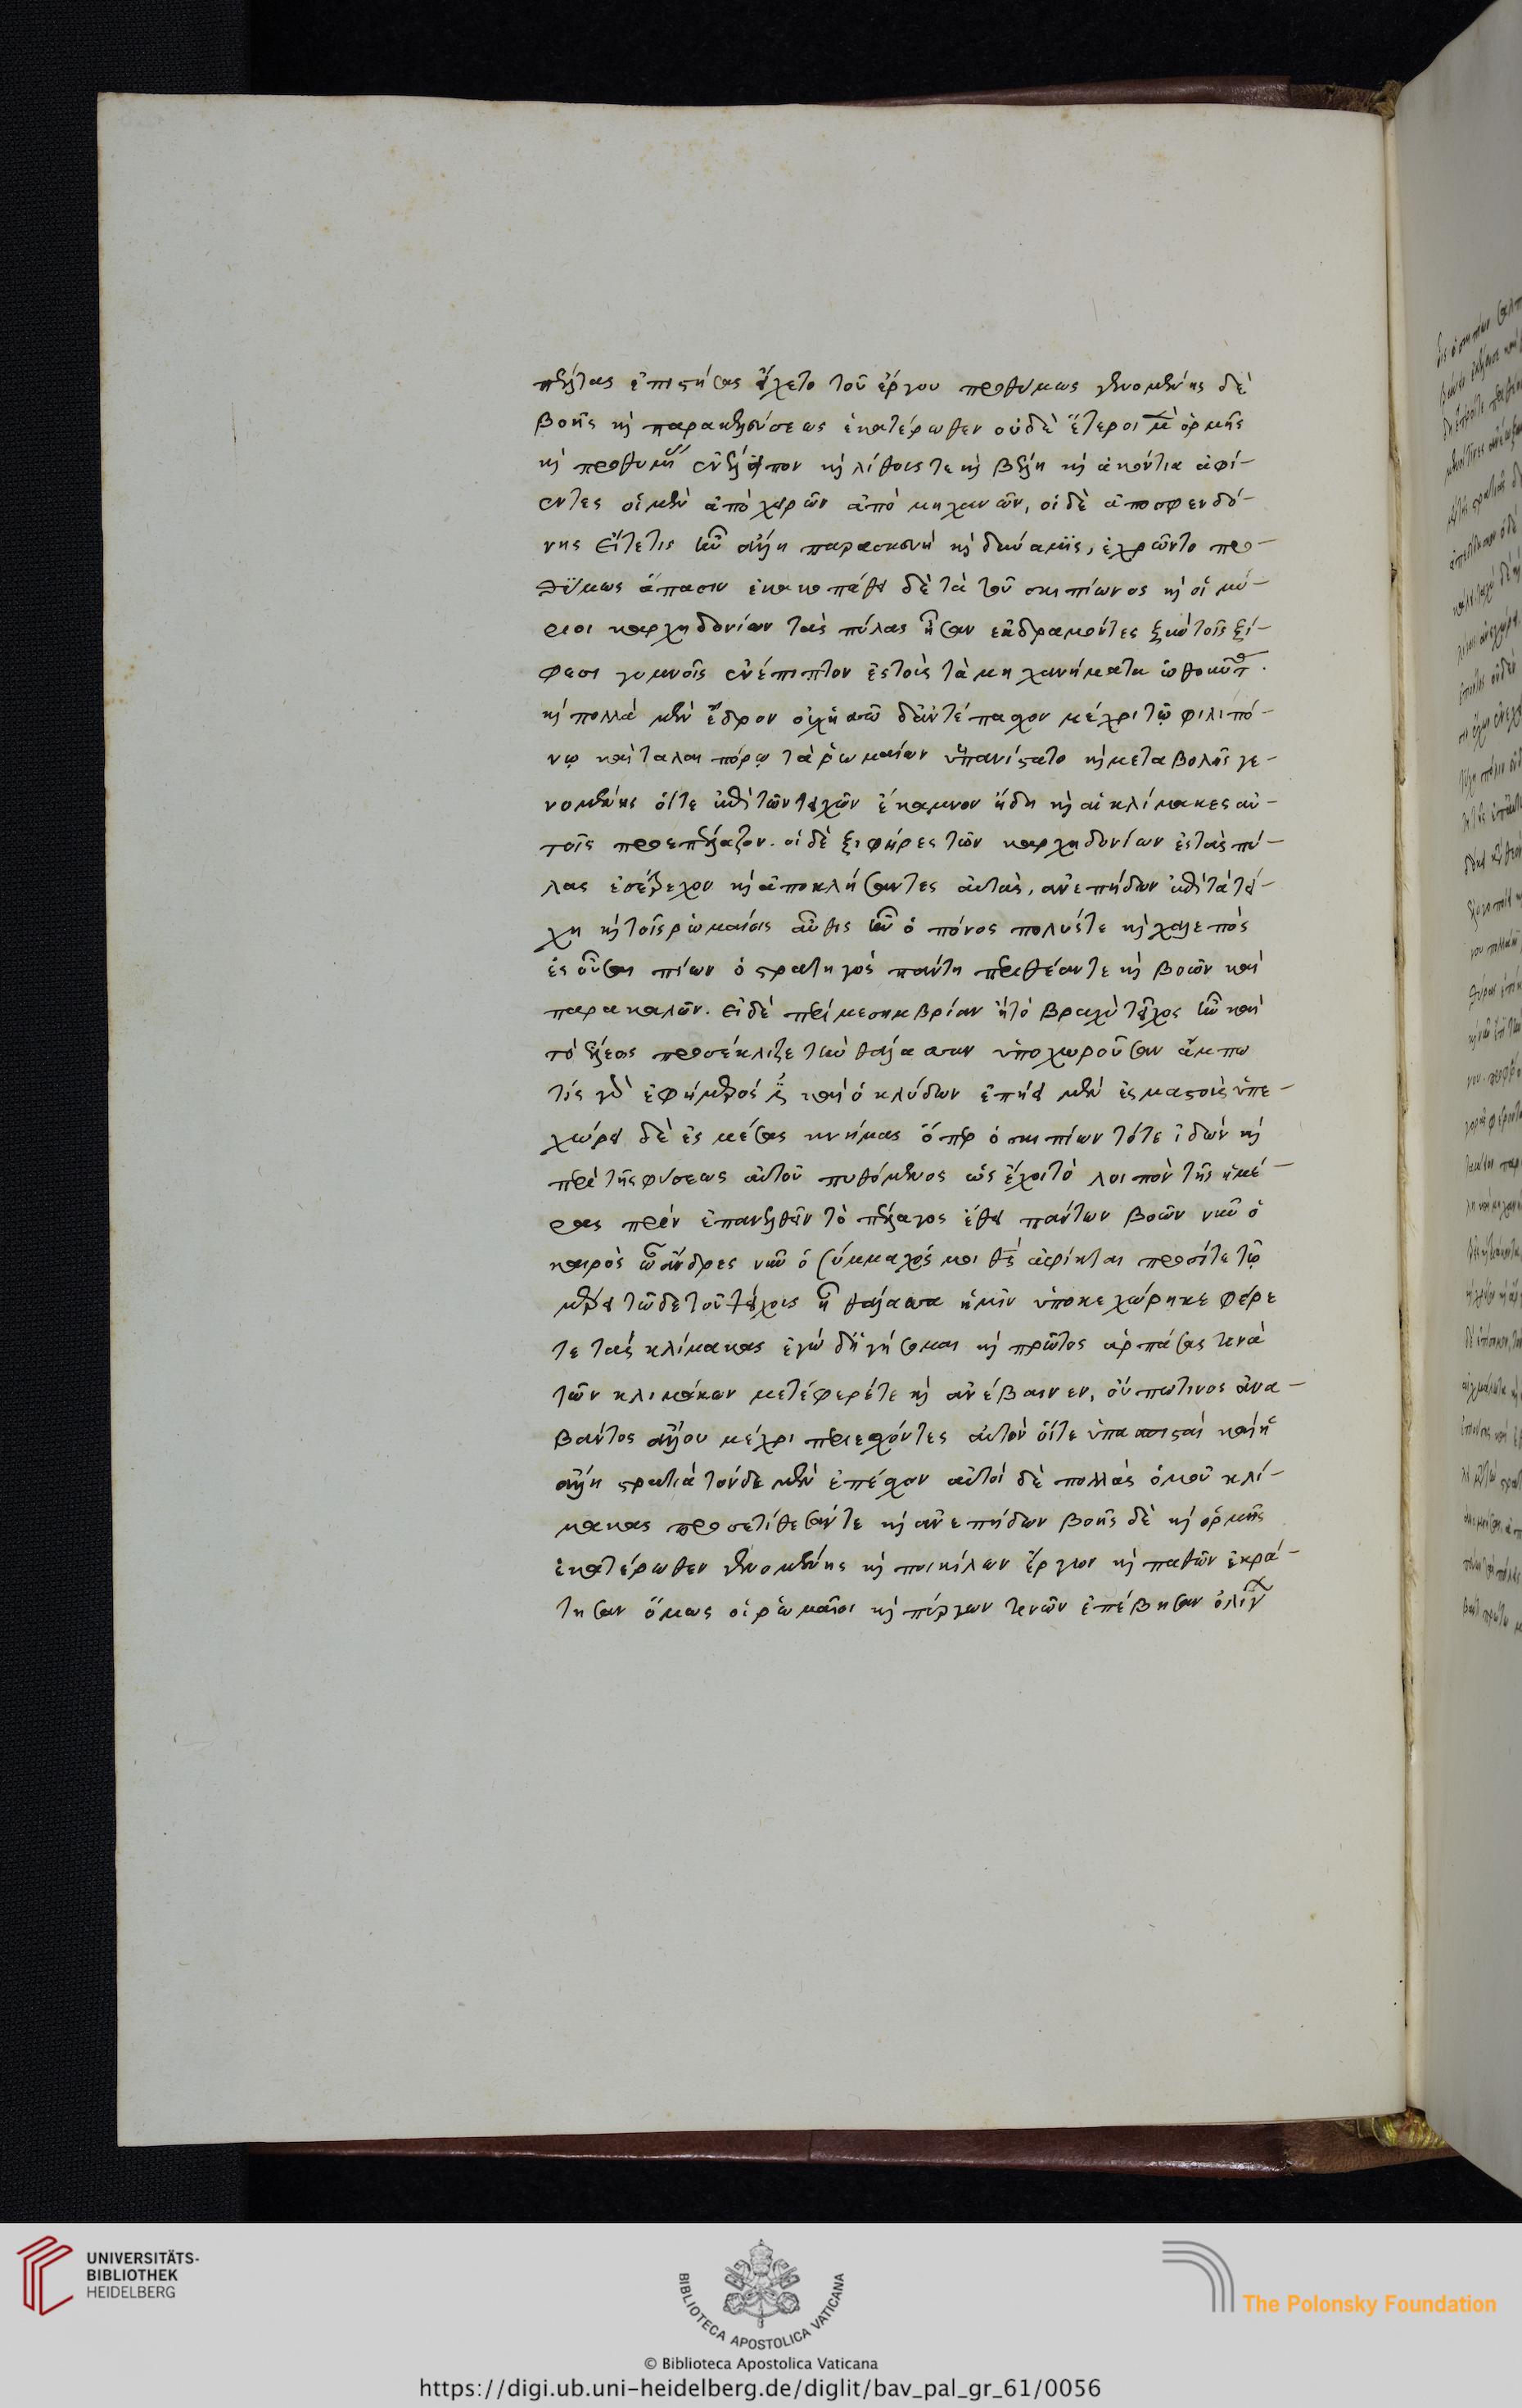 πλείτας ἐπιστήσας εἴχετο τοῦ ἔργου προθύμως γινομένης δὲ
βοῆς καὶ παρακελεύσεως ἑκατέρωθεν οὐδὲ ἕτεροι μὲν ὁρμῆς
καὶ προθυμίας ἐνέλειπον καὶ λίθους τε καὶ βέλη καὶ ἀκόντια ἀφί-
εντες οἱ μὲν ἀπὸ χειρῶν ἀπὸ μηχανῶν, οἱ δὲ ἀπο σφενδό-
νης εἴτε τις ἦν ἄλλη παρασκευὴ καὶ δύναμις, ἐχρῶντο προ-
θύμως ἅπασιν ἐκακοπάθει δὲ τὰ τοῦ σκιπίωνος καὶ οἱ μύ-
ριοι καρχηδονίων τὰς πύλας ἦσαν ἐκδραμόντες ξὺν τοῖς ξί-
φεσι γυμνοῖς ἐνέπιπτον ἐς τοὺς τὰ μηχανήματα ὠθοῦντ
καὶ πολλὰ μὲν ἔδρων οὐχ ἥσσω δ' ἀντέπασχον μέχρι τῷ φιλοπό-
νῳ καὶ ταλαιπόρῳ τὰ ῥωμαίων ὑπανίστατο καὶ μεταβολῆς γε-
νομένης οἵ τε ἐπὶ τῶν τειχῶν ἔκαμνον ἤδη καὶ αἱ κλίμακες αὐ-
τοῖς προσεπέλαζον. οἱ δὲ ξιφήρεις τῶν καρχηδονίων ἐς τὰς πύ-
λας ἐσέτρεχον καὶ ἀποκλήσαντες αὐτὰς, ἀνεπήδων ἐπὶ τὰ τεί-
χη καὶ τοῖς ῥωμαίοις αὖθις ἦν ὁ πόνος πολύς τε καὶ χαλεπὸς
ἐς οὗ σκιπίων ὁ στρατηγὸς πάντη περιθέων τε καὶ βοῶν καὶ
παρακαλῶν. εἶδε περὶ μεσημβρίαν ᾗ τὸ βραχὺ τεῖχος ἦν καὶ
τὸ ἕλεος προσέκλυζε τὴν θάλασσαν ὑποχωροῦσαν ἄμπω
τις γὰρ ἐφήμερός ἐστι καὶ ὁ κλύδων ἐπῄει μὲν ἐς μαστοὺς ὑπε-
χώρει δὲ ἐς μέσας κνήμας ὅπερ ὁ σκιπίων τότε ἰδὼν καὶ
περὶ τῆς φύσεως αὐτοῦ πυθόμενος ὡς ἔχοι τὸ λοιπὸν τῆς ἡμέ-
ρας πρὶν ἐπανελθεῖν τὸ πέλαγος ἔθει πάντων βοῶν νῦν ὁ
καιρὸς ὦ ἄνδρες νῦν ὁ σύμμαχός μοι θς ἀφίκται πρόσιτε τῷ
μέρει τῷδε τοῦ τείχους ἡ θάλασσα ἡμῖν ὑποκεχώρηκε φέρε
τε τὰς κλίμακας ἐγὼ δ' ἡγήσομαι καὶ πρῶτος ἁρπάσας τινὰ
τῶν κλιμάκων μετέφερέ τε καὶ ἀνέβαινεν, οὔπω τινος ἀνα-
βάντος ἄλλου μέχρι περισχόντες αὐτὸν οἵ τε ὑπασπισταὶ καὶ ἡ
ἄλλη στρατιὰ τόνδε μὲν ἐπέσχον αὐτοὶ δὲ πολλὰς ὁμοῦ κλί-
μακας προσετίθεσάν τε καὶ ἀνεπήδων βοῆς δὲ καὶ ὁρμῆς
ἑκατέρωθεν γινομένης καὶ ποικίλων ἔργων καὶ παθῶν ἐκρά-
τησαν ὅμως οἱ ῥωμαῖοι καὶ πύργων τινῶν ἐπέβησαν ὀλίγων
UNIVERSITÄTS-
BIBLIOTHEK
HEIDELBERG
BIBLIOTECA APOSTOLICA VATICANA
The Polonsky Foundation
© Biblioteca Apostolica Vaticana
https://digi.ub.uni-heidelberg.de/diglit/bav_pal_gr_61/0056